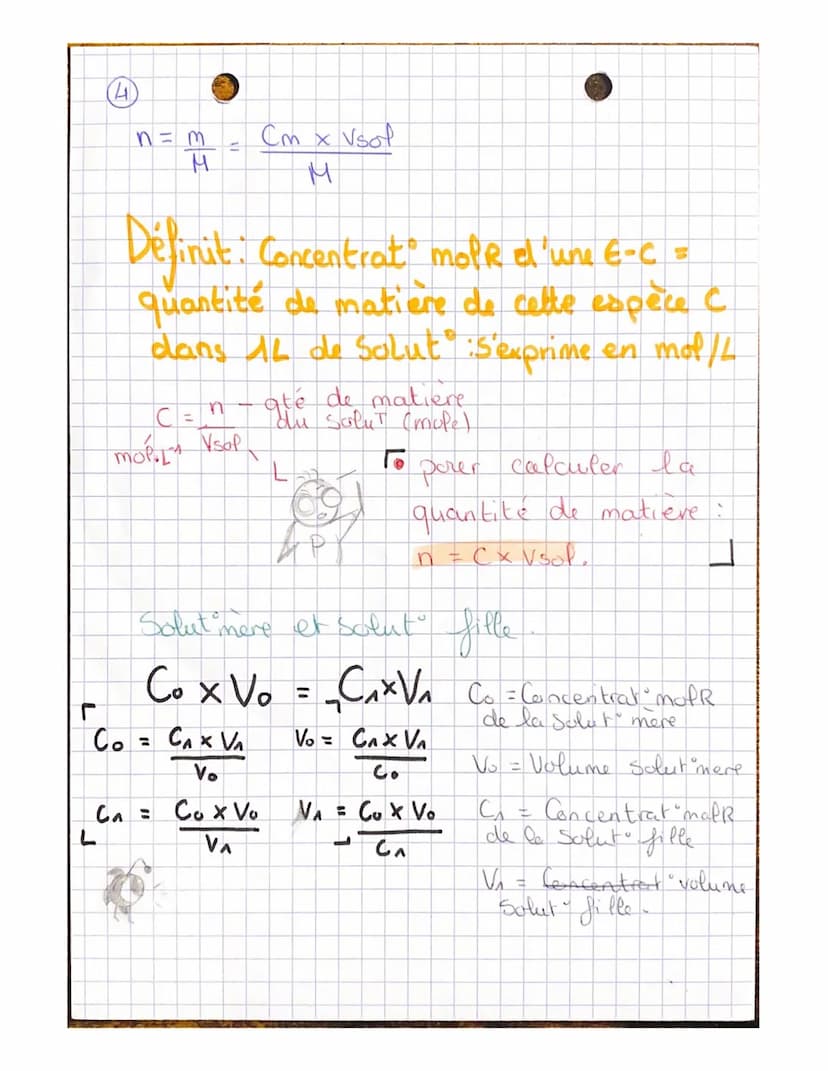 4
n = m/M = Cm x Vsol/M
Définit° : Concentrat° molR d'une E-C =
quantité de matière de cette espèce C
dans 1L de Solut° : s'exprime en mol/L
C = n/Vsol - qté de matière
du SoluT (mole)
mol.L⁻¹
L
pour calculer la
quantité de matière :
n = C x Vsol.
P
Solut° mère et solut° fille.
C₀ x V₀ = C₁ x V₁
C₀ = C₁ x V₁/V₀
V₀ = C₁ x V₁/C₀
C₁ = C₀ x V₀/V₁
V₁ = C₀ x V₀/C₁
C₀ = Concentrat° molR
de la Solut° mère
V₀ = Volume solut° mere
C₁ = Concentrat° molR
de la Solut° fille
V₁ = Concentrat° volume
Solut° fille.